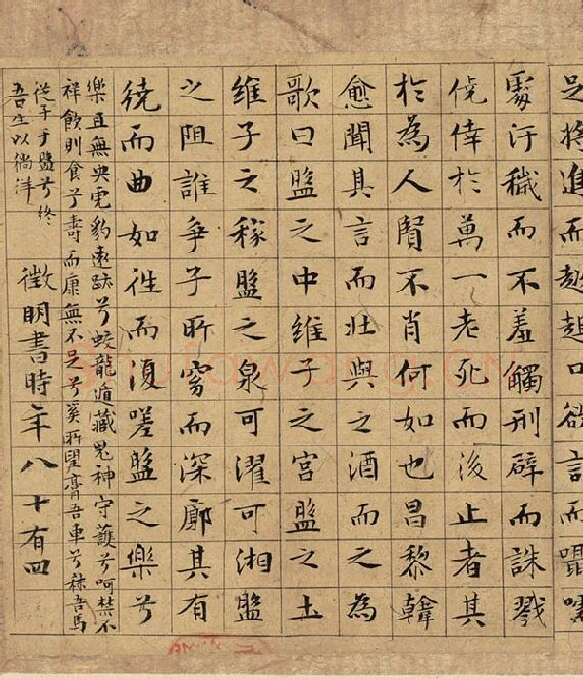 足將進而趑趄口欲言而囁嚅
處汙穢而不羞觸刑辟而誅戮
僥倖於萬一老死而後止者其
於為人賢不肖何如也昌黎韓
愈聞其言而壯與之酒而之為
歌曰盤之中維子之宮盤之土
維子之稼盤之泉可濯可湘盤
之阻誰爭子所窈而深廓其有
繞而曲如往而復嗟盤之樂兮
樂且無央虎豹遠跡兮蛟龍遁藏鬼神守護兮呵禁不
祥飲則食兮壽而康無不足兮奚所望膏吾車兮秣吾馬
從子于盤兮終
吾生以徜徉
徵明書時年八十有四